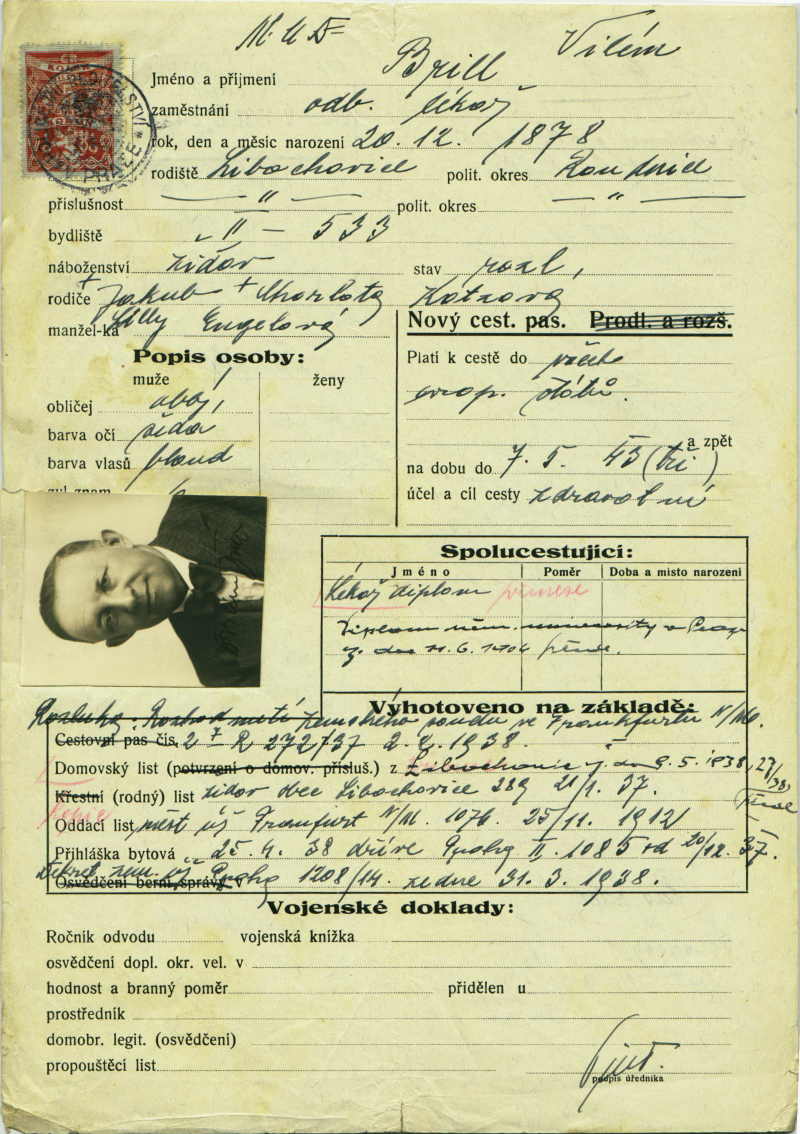 Brill Vilém
Jméno a příjmení
zaměstnání odb. lékař
rok, den a měsíc narození 20. 12. 1878
rodiště Libochovice polit. okres Roudnice
příslušnost — " — polit. okres — " —
bydliště — " — 533
náboženství židov stav rozl,
rodiče Jakub + Charlota Kotzova
manžel-ka Elly Engelová
Nový cest. pas. Prodl. a rozš.
Popis osoby:
muže ženy
obličej obl,
barva očí šedá
barva vlasů blond
zvl. znam.
Platí k cestě do všech
evrop. států.
a zpět
na dobu do 7. 5. 43 (tři)
účel a cíl cesty zdravotní
Spolucestující:
Jméno Poměr Doba a místo narození
Lékař diplom přinese
Diplom něm. university v Praze
z dne 11. 6. 1904
Vyhotoveno na základě:
Rozluka: zemského soudu ve Frankfurtu n/M.
Cestovní pas čís. 2 7 R 272/37 2. 2. 1938.
Domovský list (potvrzení o domov. přísluš.) z Libochovic 9. 5. 1938,
Křestní (rodný) list židov obec Libochovice 289 21/1. 37.
Oddací list měst úř Frankfurt n/M. 1076. 25/11. 1912
Přihláška bytová 25. 4. 38 dříve Prahy II. 1085 od 20/12. 37.
Osvědčení berní správy v Praha 1208/14. ze dne 31. 3. 1938.
Vojenské doklady:
Ročník odvodu vojenská knížka
osvědčení dopl. okr. vel. v
hodnost a branný poměr přidělen u
prostředník
domobr. legit. (osvědčení)
propouštěcí list
podpis úředníka